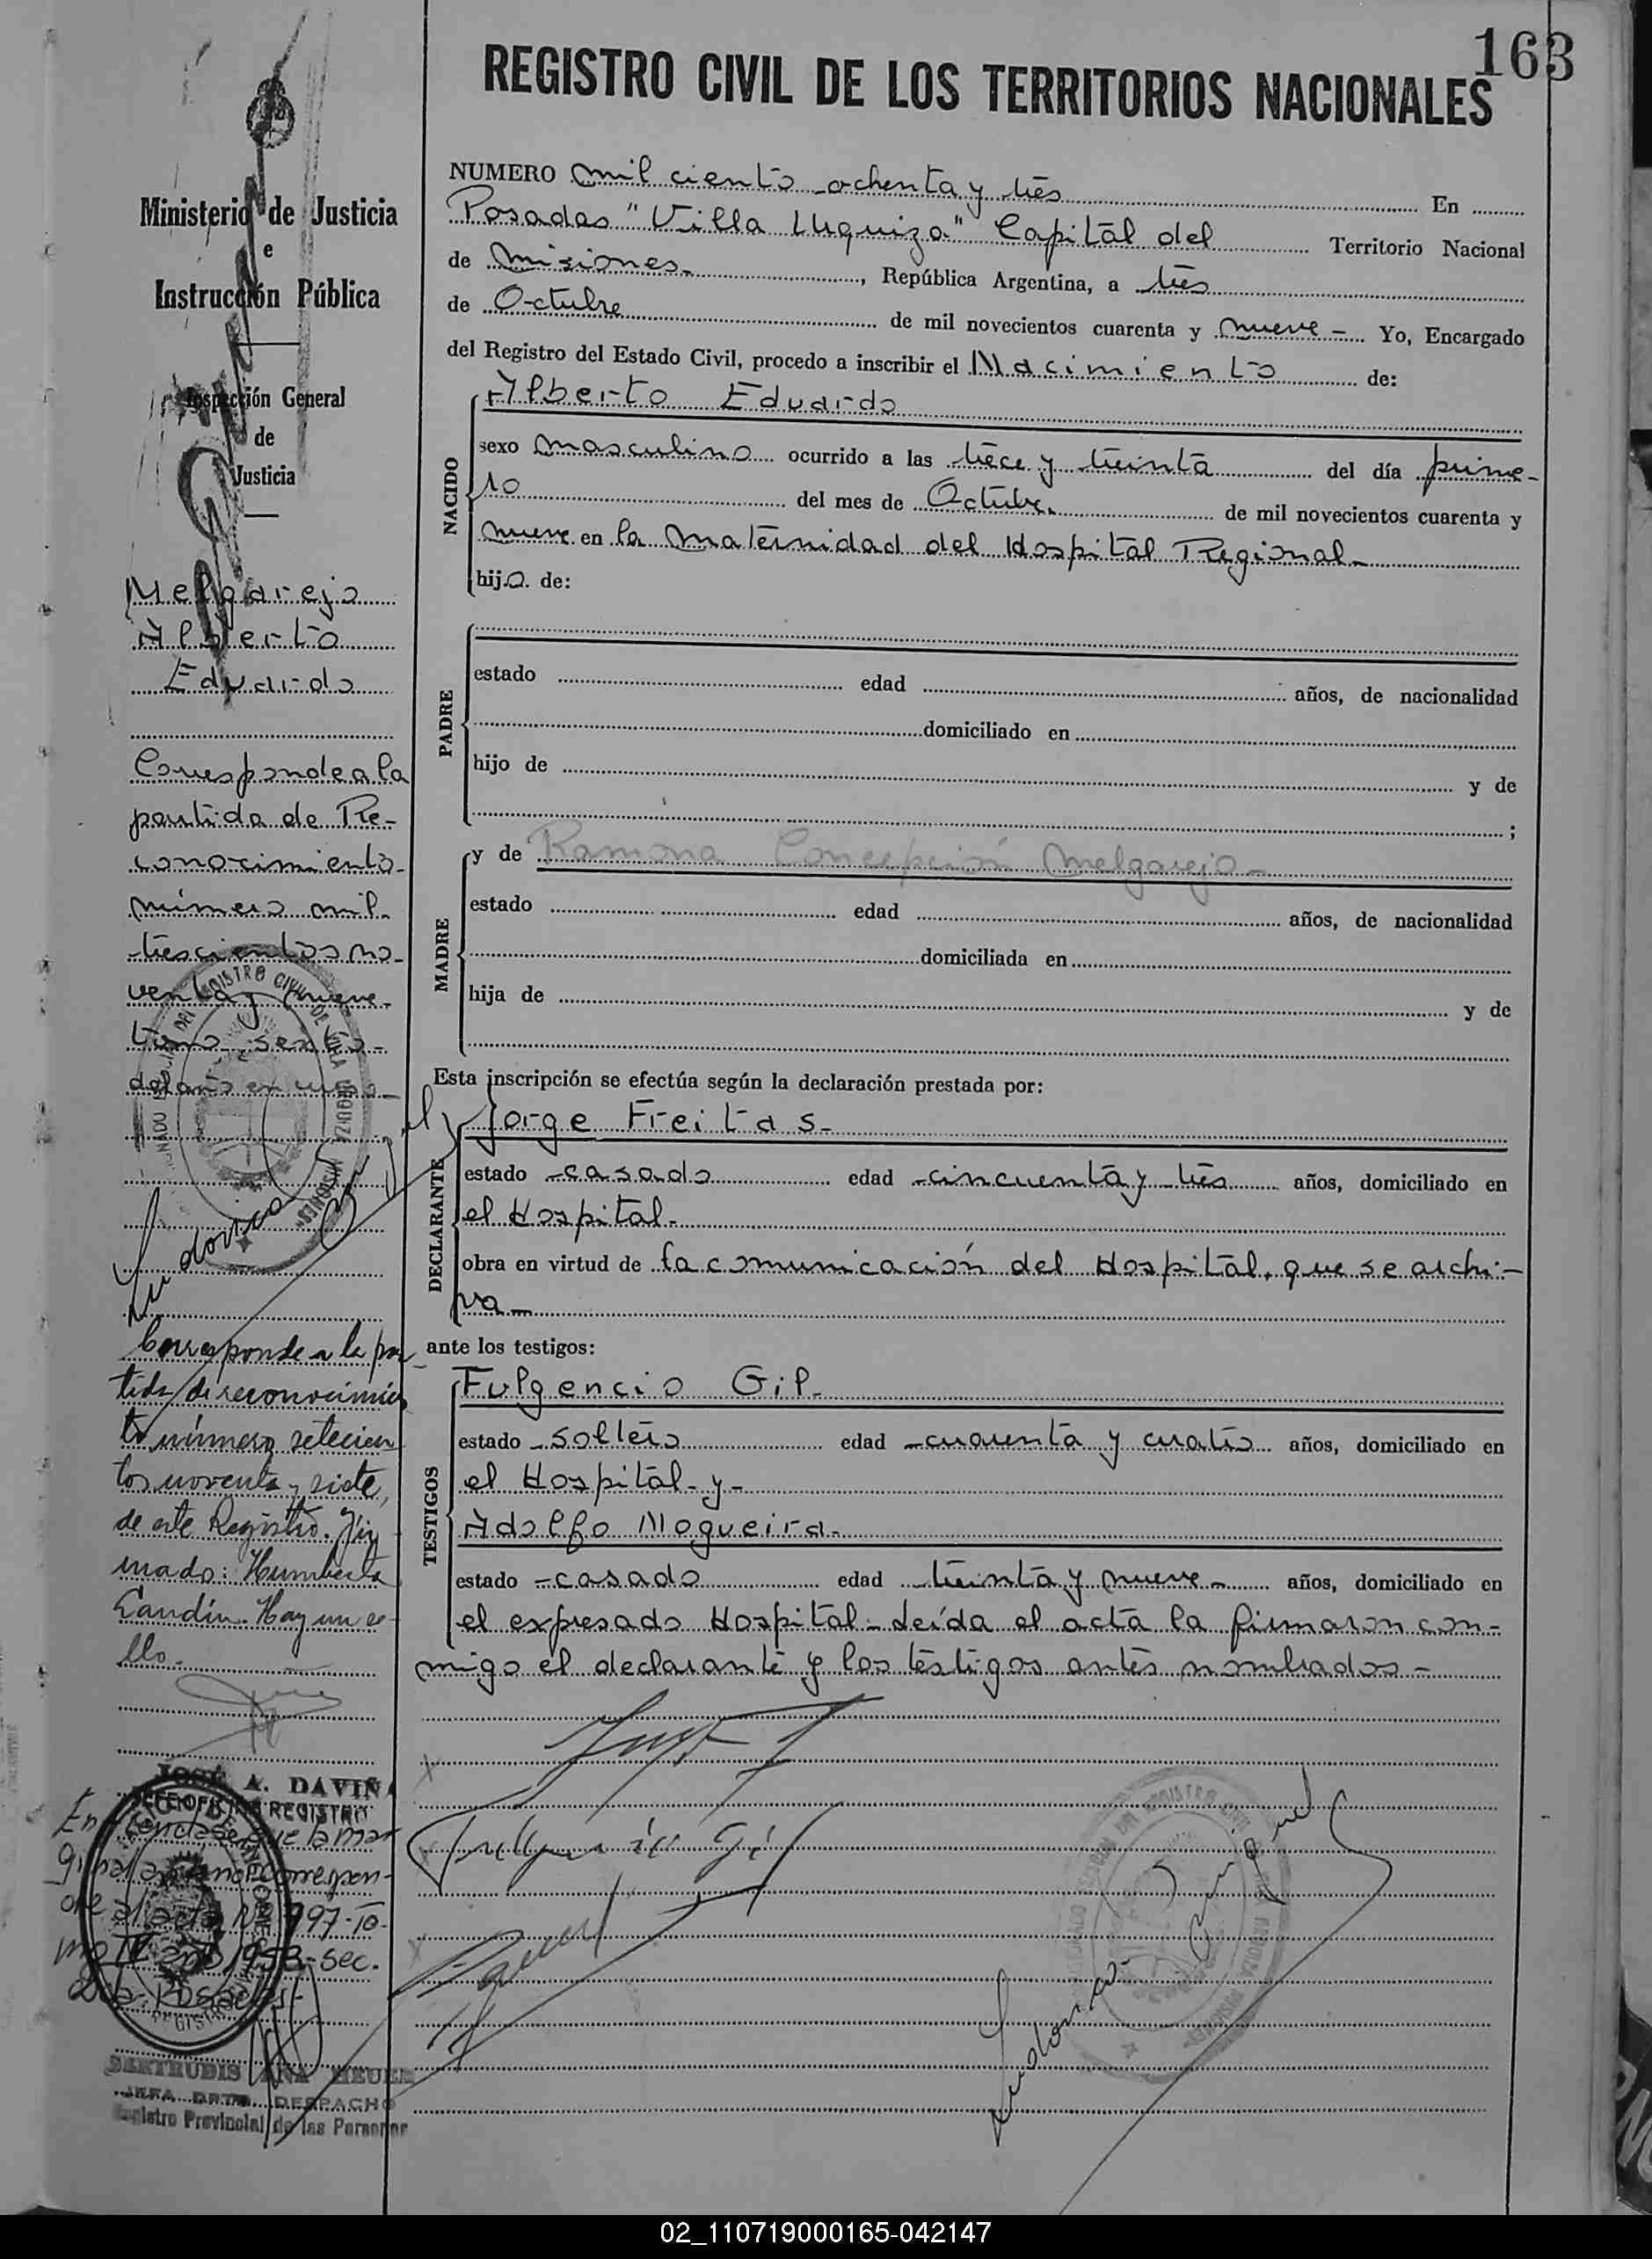 163
REGISTRO CIVIL DE LOS TERRITORIOS NACIONALES
Ministerio de Justicia
e
Instrucción Pública
Inspección General
de
Justicia
Melgarejo
Alberto
Eduardo
Corresponde a la
partida de Re-
conocimiento
número mil
trescientos no-
venta y nueve
tomo sexto
del año en curso
Ludovico
Corresponde a la par
tida de reconocimien
to número setecien
tos noventa y siete,
de este Registro. Fir
mado: Humberto
Landín. Hay un se-
llo.
JOSÉ A. DAVIÑA
JEFE OFICINA REGISTRO
Entiendase que la mar
ginal corresponde
al acta Nº 797-To-
mo IV año 1953-sec.
Posadas
GERTRUDIS ANA HEUER
JEFA DPTO. DESPACHO
Registro Provincial de las Personas
NUMERO mil ciento ochenta y tres En
Posadas "Villa Urquiza" Capital del Territorio Nacional
de Misiones-, República Argentina, a tres
de Octubre de mil novecientos cuarenta y nueve- Yo, Encargado
del Registro del Estado Civil, procedo a inscribir el Nacimiento de:
NACIDO
Alberto Eduardo
sexo masculino ocurrido a las trece y treinta del día prime-
ro del mes de Octubre de mil novecientos cuarenta y
nueve en la Maternidad del Hospital Regional-
hijo de:
PADRE
estado edad años, de nacionalidad
domiciliado en
hijo de y de
;
MADRE
y de Ramona Concepción Melgarejo-
estado edad años, de nacionalidad
domiciliada en
hija de y de
Esta inscripción se efectúa según la declaración prestada por:
DECLARANTE
Jorge Freitas-
estado -casado edad -cincuenta y tres años, domiciliado en
el Hospital-
obra en virtud de la comunicación del Hospital, que se archi-
va-
ante los testigos:
TESTIGOS
Fulgencio Gil-
estado -soltero edad -cuarenta y cuatro años, domiciliado en
el Hospital-y-
Adolfo Nogueira-
estado -casado edad treinta y nueve- años, domiciliado en
el expresado Hospital-Leída el acta la firmaron con-
migo el declarante y los testigos antes nombrados-
Fulgencio Gil
Ludovico
02_110719000165-042147